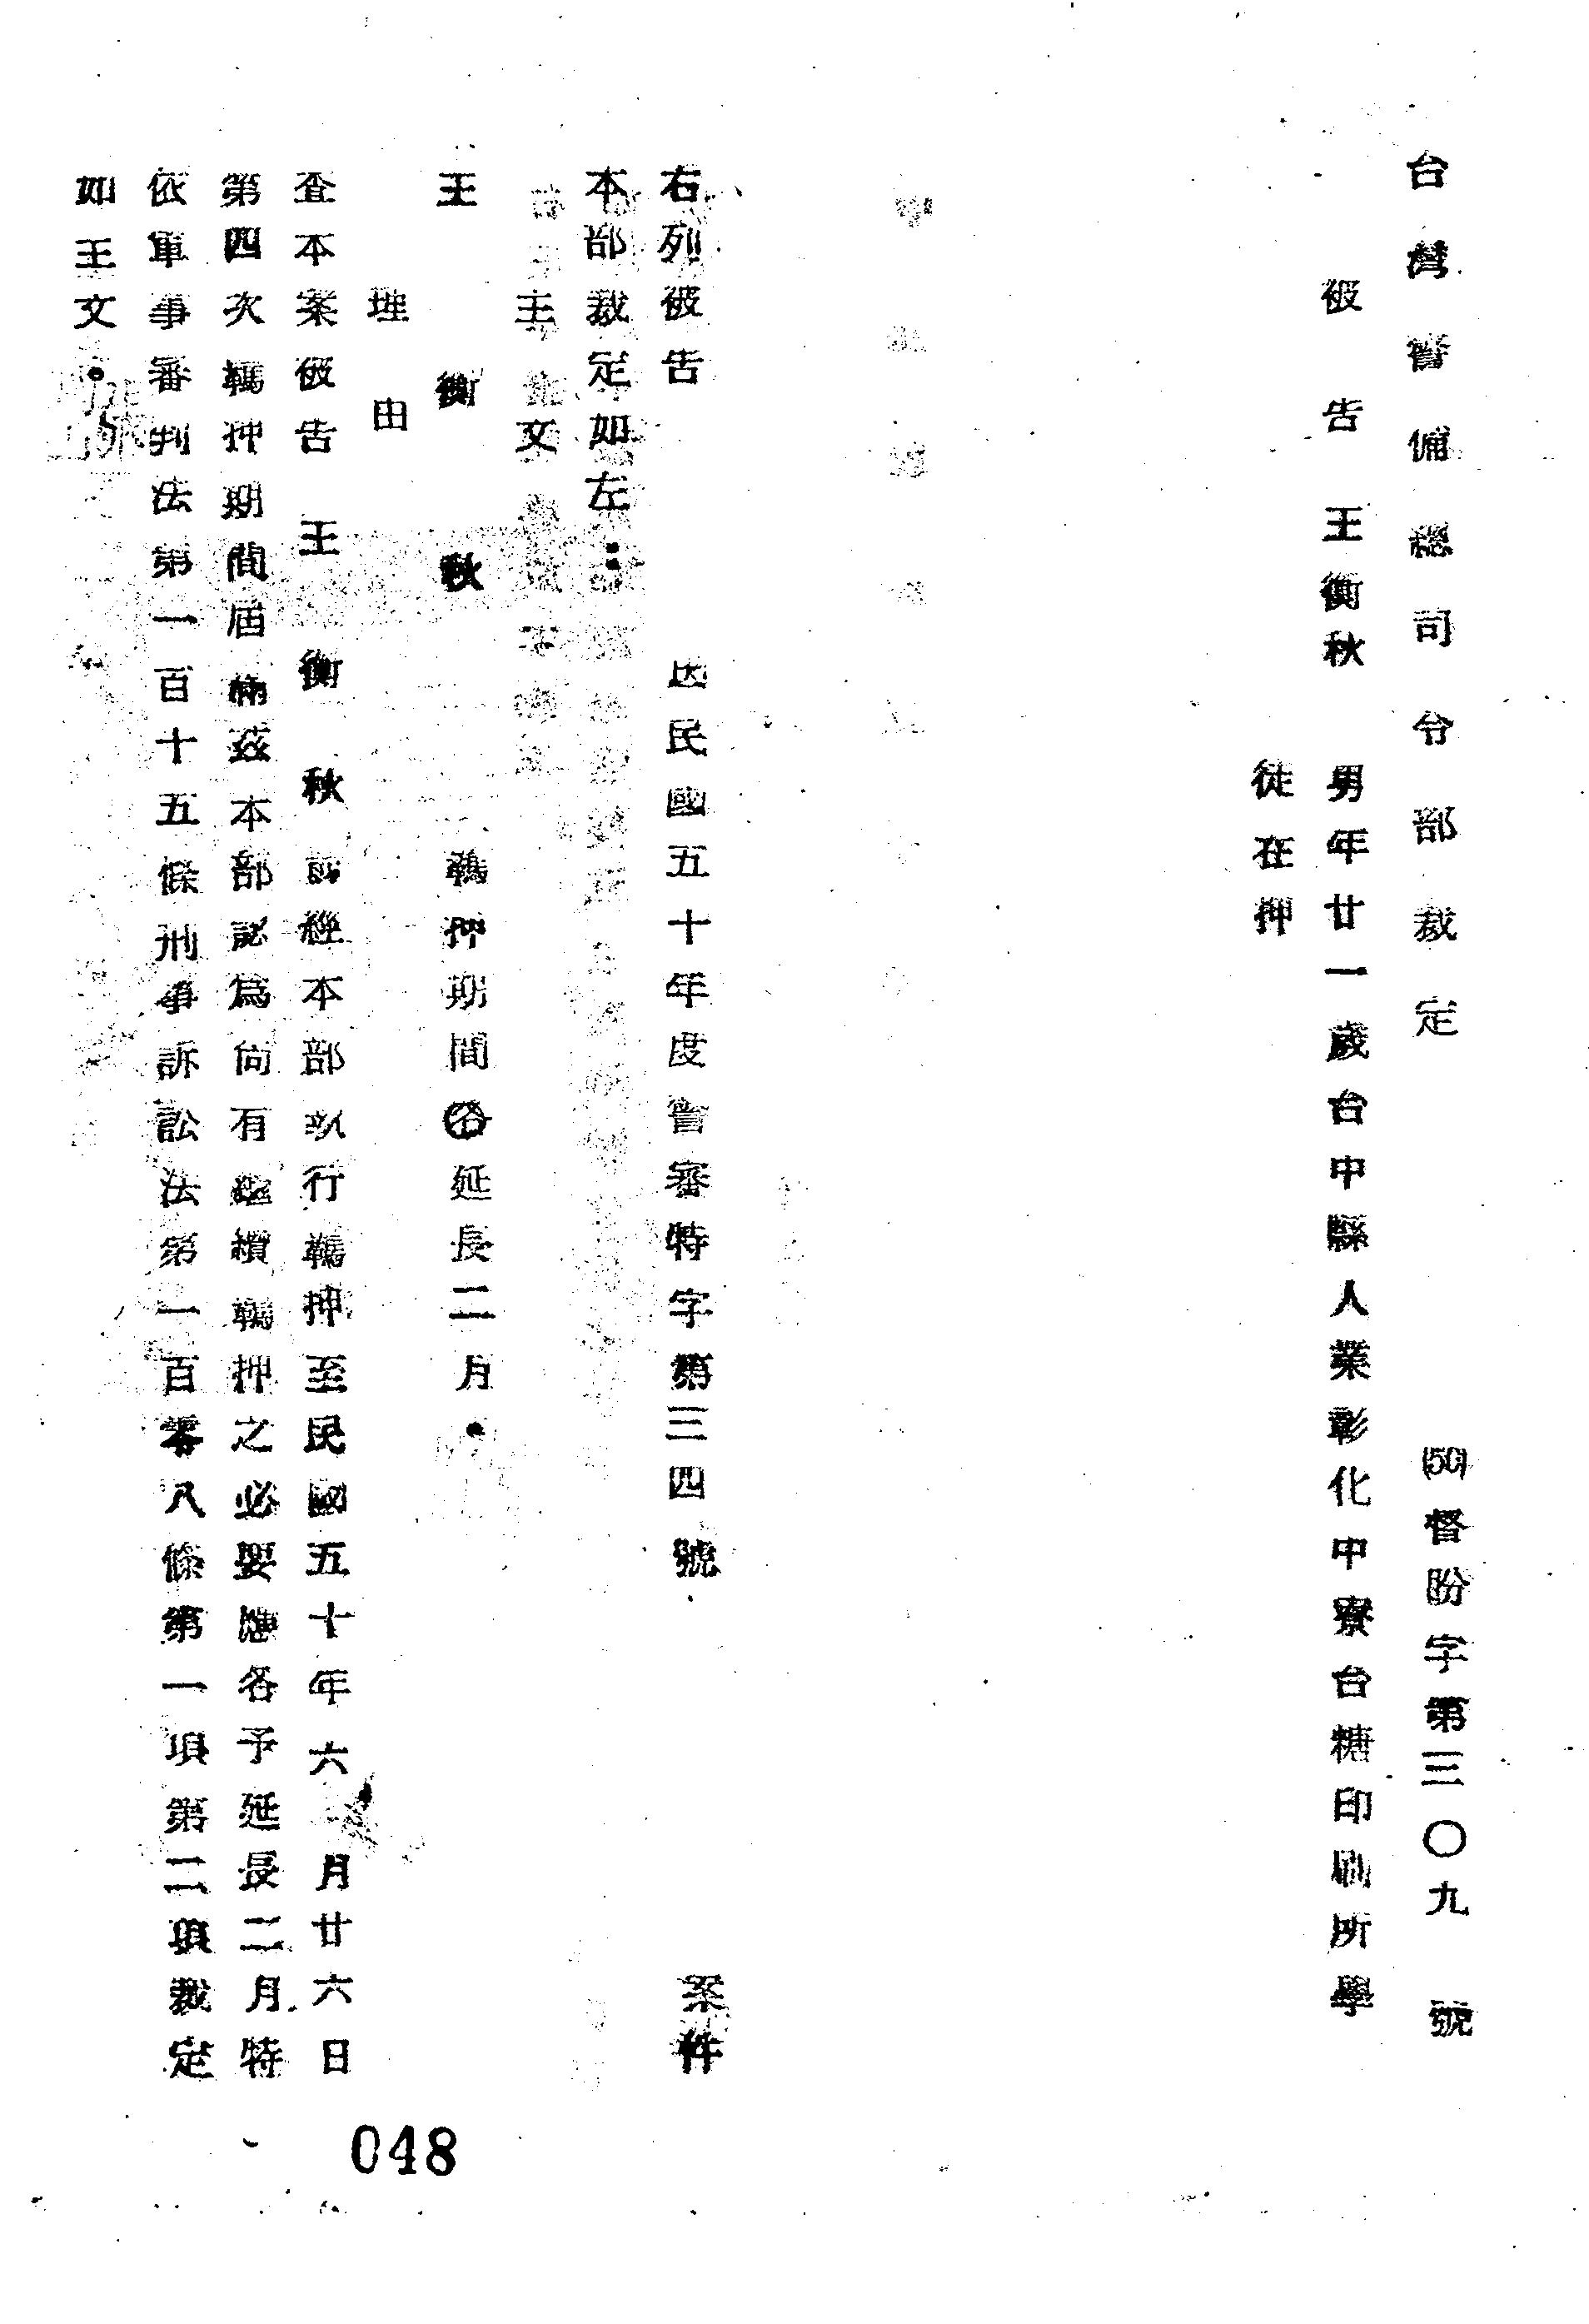 台灣警備總司令部裁定 (50)督盼字第三〇九號
被告 王衡秋 男年廿一歲台中縣人業彰化中寮台糖印刷所學
徒在押
右列被告 民國五十年度警審特字第三四號 案件
本部裁定如左：
主文
王衡秋 羈押期間各延長二月．
理由
查本案被告 王衡秋 前經本部執行羈押至民國五十年六月廿六日
第四次羈押期間屆滿茲本部認為尚有繼續羈押之必要應各予延長二月特
依軍事審判法第一百十五條刑事訴訟法第一百零八條第一項第二項裁定
如主文．
048